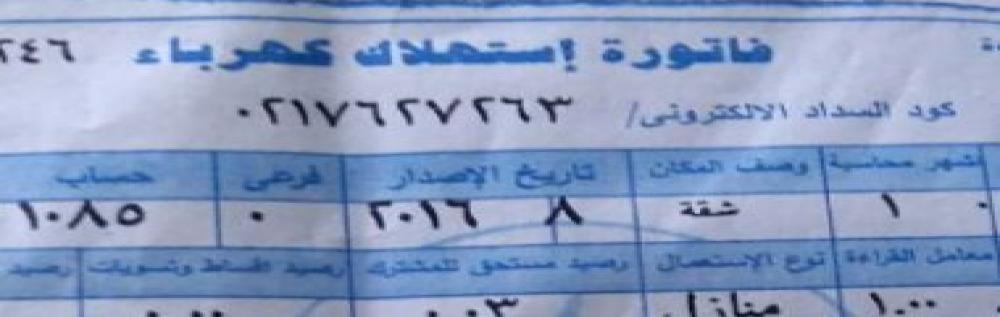 فاتورة إستهلاك كهرباء ٢٤٦
كود السداد الالكترونى/ ٠٢١٧٦٢٧٢٦٣
شهر محاسبة وصف المكان تاريخ الإصدار فرعى حساب
١ شقة ٨ ٢٠١٦ ٠ ١٠٨٥
معامل القراءة نوع الإستعمال رصيد مستحق للمشترك رصيد اقساط وتسويات رصيد
١.٠٠ منازل